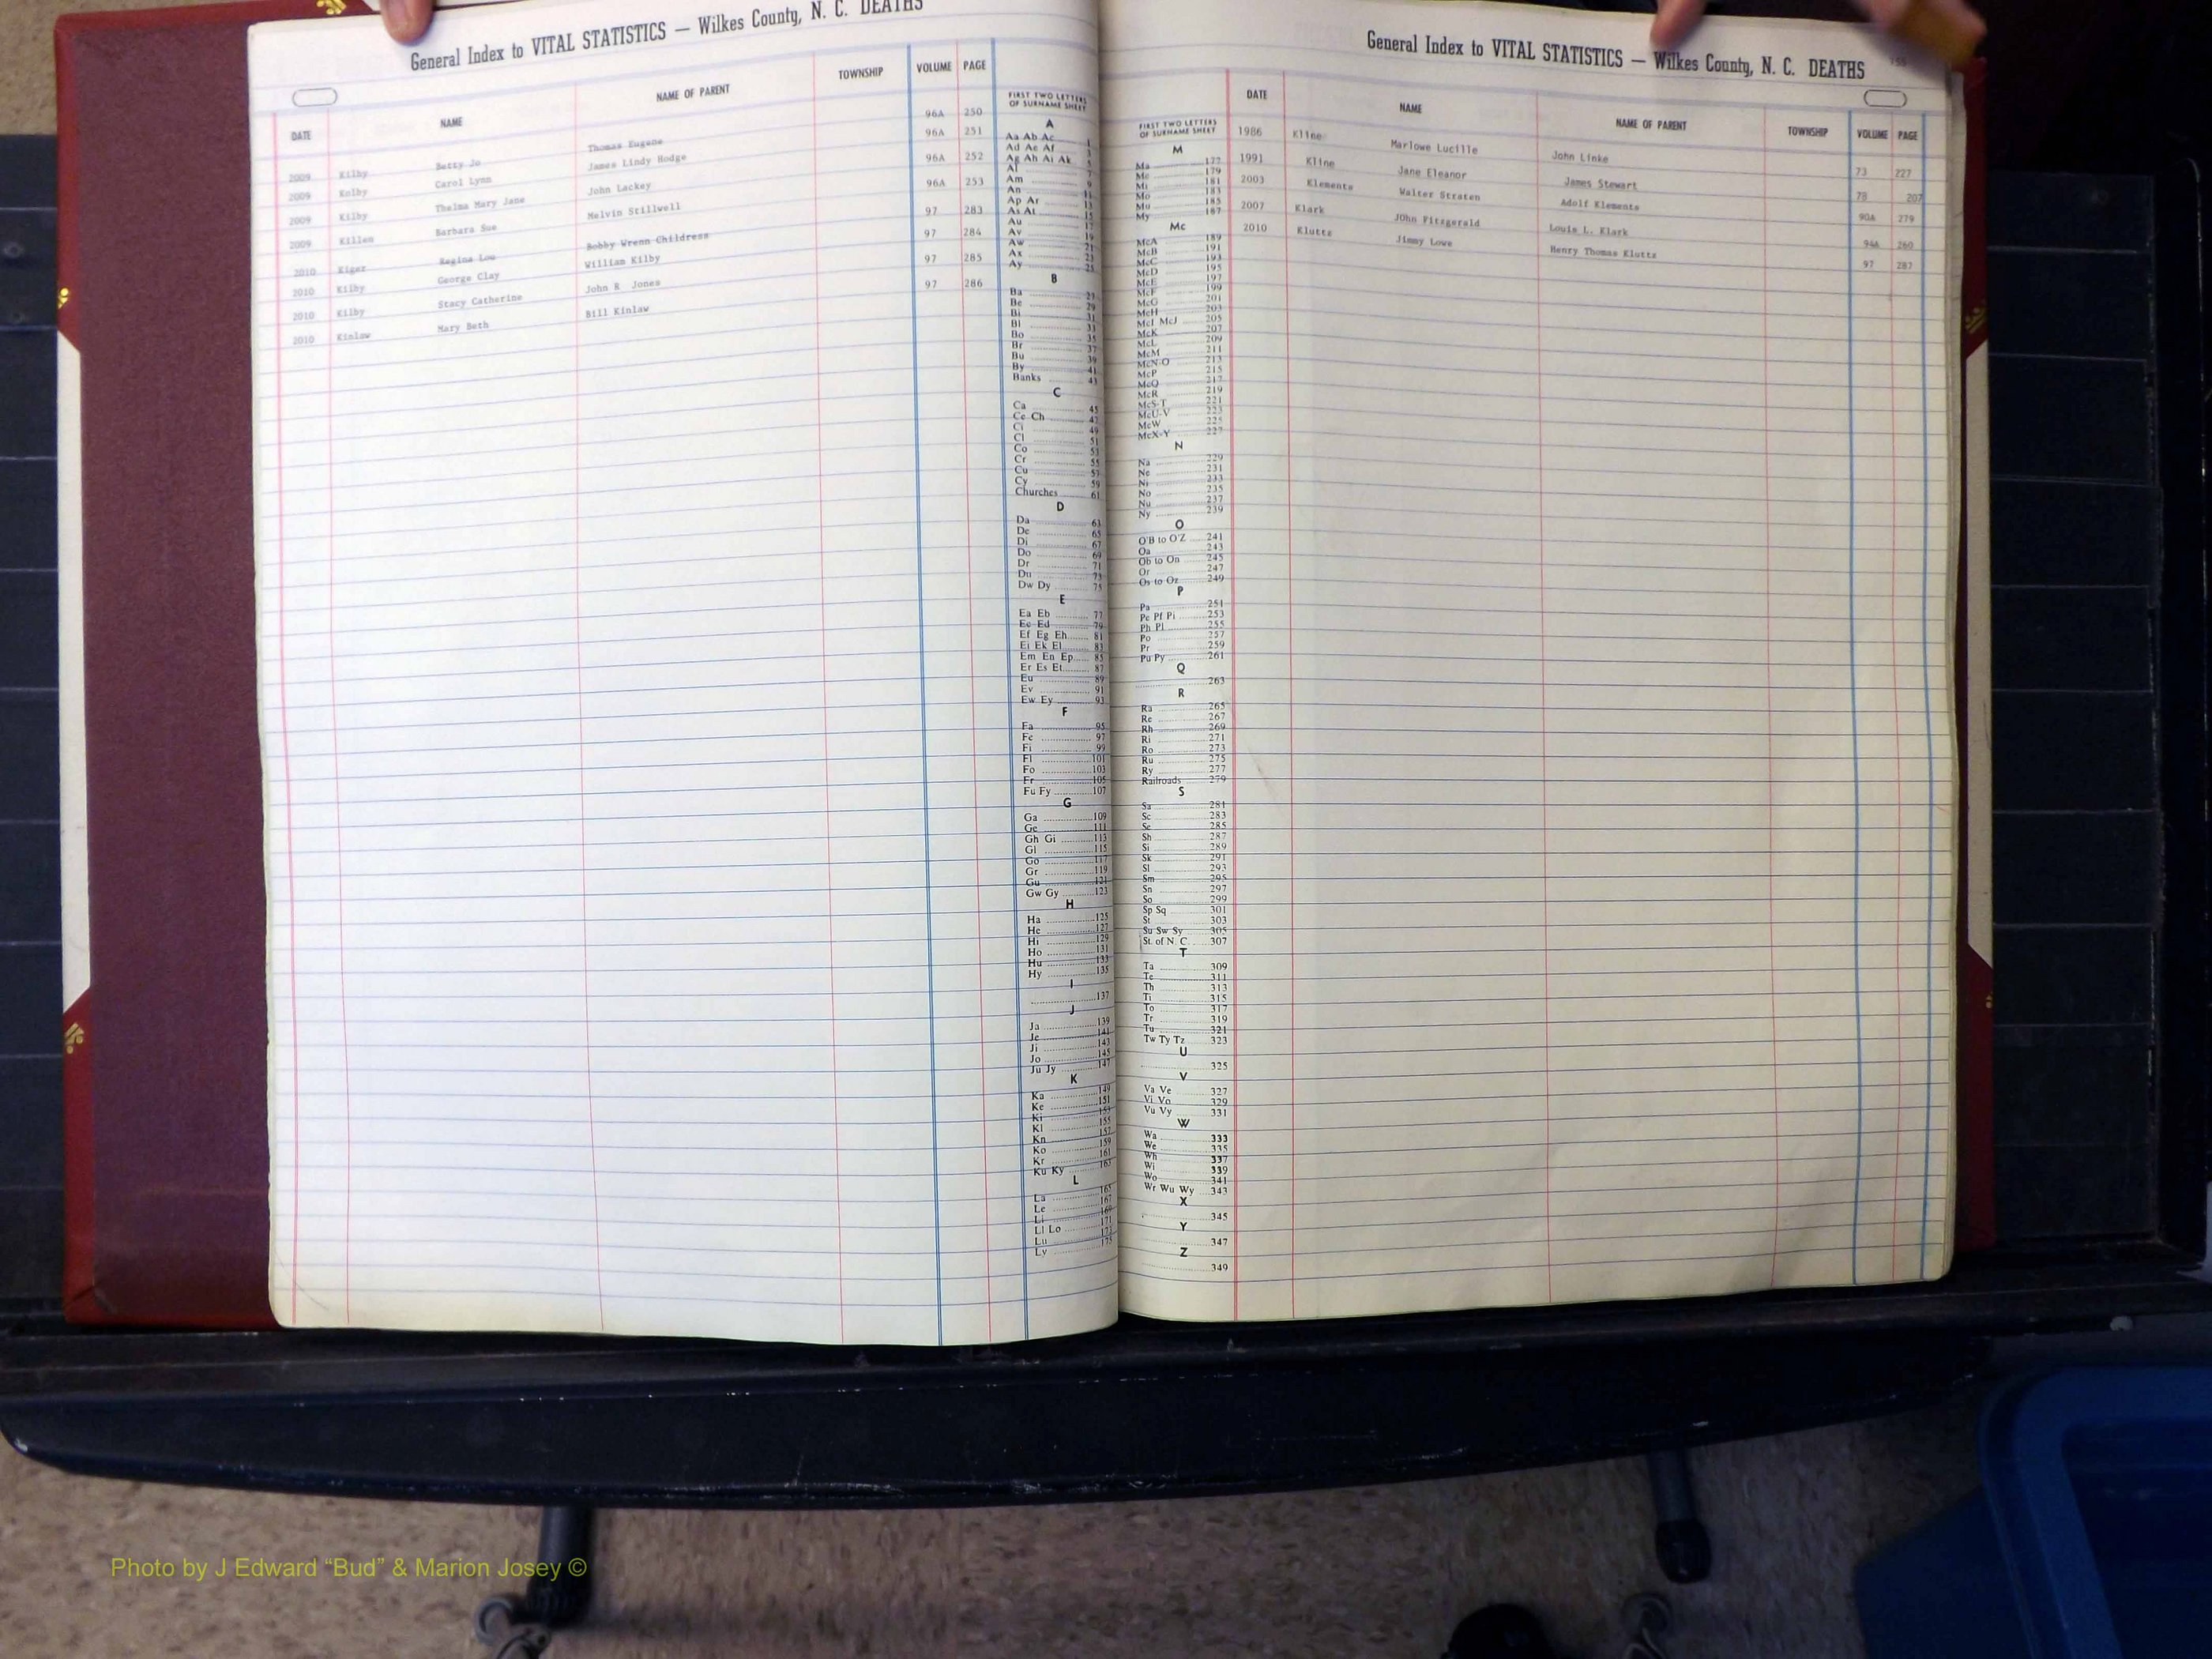 General Index to VITAL STATISTICS — Wilkes County, N. C. DEATHS
DATE NAME NAME OF PARENT TOWNSHIP VOLUME PAGE
2009 Kilby Betty Jo Thomas Eugene 96A 250
2009 Kolby Carol Lynn James Lindy Hodge 96A 251
2009 Kilby Thelma Mary Jane John Lackey 96A 252
2009 Killen Barbara Sue Melvin Stillwell 96A 253
2010 Kiger Regina Lou Bobby Wrenn Childress 97 283
2010 Kilby George Clay William Kilby 97 284
2010 Kilby Stacy Catherine John R Jones 97 285
2010 Kinlaw Mary Beth Bill Kinlaw 97 286
FIRST TWO LETTERS
OF SURNAME SHEET
A
Aa Ab Ac 1
Ad Ae Af 3
Ag Ah Ai Ak 5
Al 7
Am 9
An 11
Ap Ar 13
As At 15
Au 17
Av 19
Aw 21
Ax 23
Ay 25
B
Ba 27
Be 29
Bi 31
Bl 33
Bo 35
Br 37
Bu 39
By 41
Banks 43
C
Ca 45
Ce Ch 47
Ci 49
Cl 51
Co 53
Cr 55
Cu 57
Cy 59
Churches 61
D
Da 63
De 65
Di 67
Do 69
Dr 71
Du 73
Dw Dy 75
E
Ea Eb 77
Ec Ed 79
Ef Eg Eh 81
Ei Ek El 83
Em En Ep 85
Er Es Et 87
Eu 89
Ev 91
Ew Ey 93
F
Fa 95
Fe 97
Fi 99
Fl 101
Fo 103
Fr 105
Fu Fy 107
G
Ga 109
Ge 111
Gh Gi 113
Gl 115
Go 117
Gr 119
Gu 121
Gw Gy 123
H
Ha 125
He 127
Hi 129
Ho 131
Hu 133
Hy 135
I
137
J
Ja 139
Je 141
Ji 143
Jo 145
Ju Jy 147
K
Ka 149
Ke 151
Ki 153
Kl 155
Kn 157
Ko 159
Kr 161
Ku Ky 163
L
La 165
Le 167
Li 169
Ll Lo 171
Lu 173
Ly 175
General Index to VITAL STATISTICS — Wilkes County, N. C. DEATHS
155
DATE NAME NAME OF PARENT TOWNSHIP VOLUME PAGE
1986 Kline Marlowe Lucille John Linke 73 227
1991 Kline Jane Eleanor James Stewart 78 207
2003 Klements Walter Straten Adolf Klements 90A 279
2007 Klark JOhn Fitzgerald Louis L. Klark 94A 260
2010 Klutts Jimmy Lowe Henry Thomas Klutts 97 287
FIRST TWO LETTERS
OF SURNAME SHEET
M
Ma 177
Me 179
Mi 181
Mo 183
Mu 185
My 187
Mc
McA 189
McB 191
McC 193
McD 195
McE 197
McF 199
McG 201
McH 203
McI McJ 205
McK 207
McL 209
McM 211
McN-O 213
McP 215
McQ 217
McR 219
McS-T 221
McU-V 223
McW 225
McX-Y 227
N
Na 229
Ne 231
Ni 233
No 235
Nu 237
Ny 239
O
O'B to O'Z 241
Oa 243
Ob to On 245
Or 247
Os to Oz 249
P
Pa 251
Pe Pf Pi 253
Ph Pl 255
Po 257
Pr 259
Pu Py 261
Q
263
R
Ra 265
Re 267
Rh 269
Ri 271
Ro 273
Ru 275
Ry 277
Railroads 279
S
Sa 281
Sc 283
Se 285
Sh 287
Si 289
Sk 291
Sl 293
Sm 295
Sn 297
So 299
Sp Sq 301
St 303
Su Sw Sy 305
St. of N. C. 307
T
Ta 309
Te 311
Th 313
Ti 315
To 317
Tr 319
Tu 321
Tw Ty Tz 323
U
325
V
Va Ve 327
Vi Vo 329
Vu Vy 331
W
Wa 333
We 335
Wh 337
Wi 339
Wo 341
Wr Wu Wy 343
X
345
Y
347
Z
349
Photo by J Edward “Bud” & Marion Josey ©